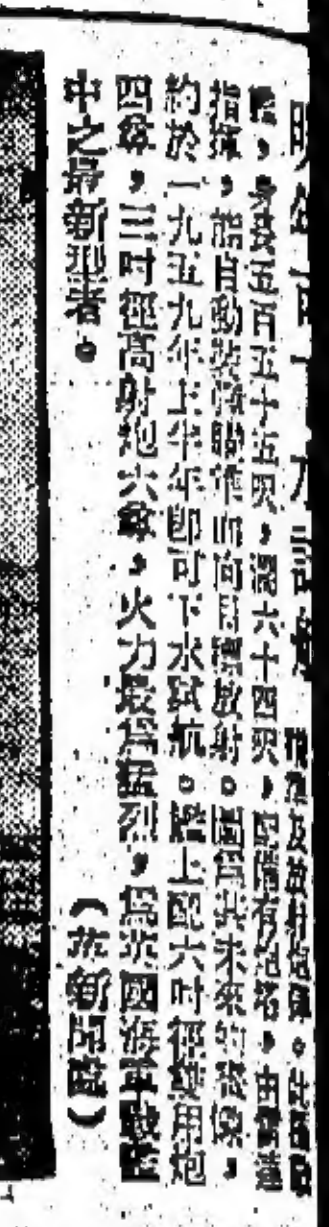 明年可下水試航
及放射炮彈。此種戰
艦,身長五百五十五呎,濶六十四呎,配備有炮塔,由雷達
指揮,能自動裝彈瞄準而向目標放射。圖為其未來的
約於一九五九年上半年卽可下水試航。艦上配六吋徑雙用炮
四尊,三吋徑高射炮六尊,火力最爲猛烈,爲英國海軍戰艦
中之最新型者。(英新聞處)